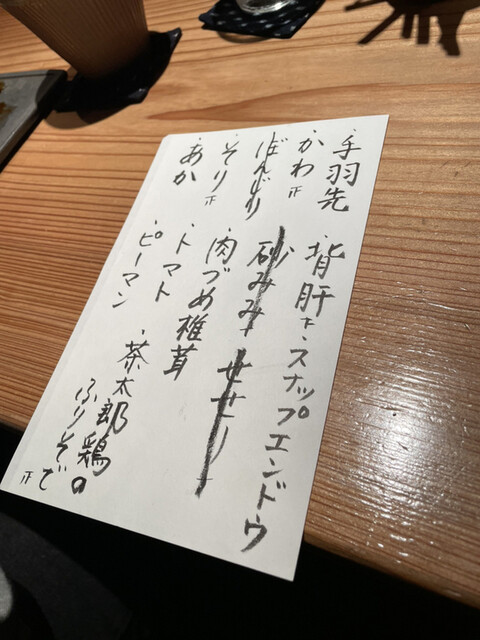 ・手羽先
・かわ正
・ぼんじり
・そり正
・あか
・背肝ト・スナップエンドウ
・砂みみ・せせり
・肉づめ椎茸
・トマト
・ピーマン
・茶太郎鶏の
ふりそで正